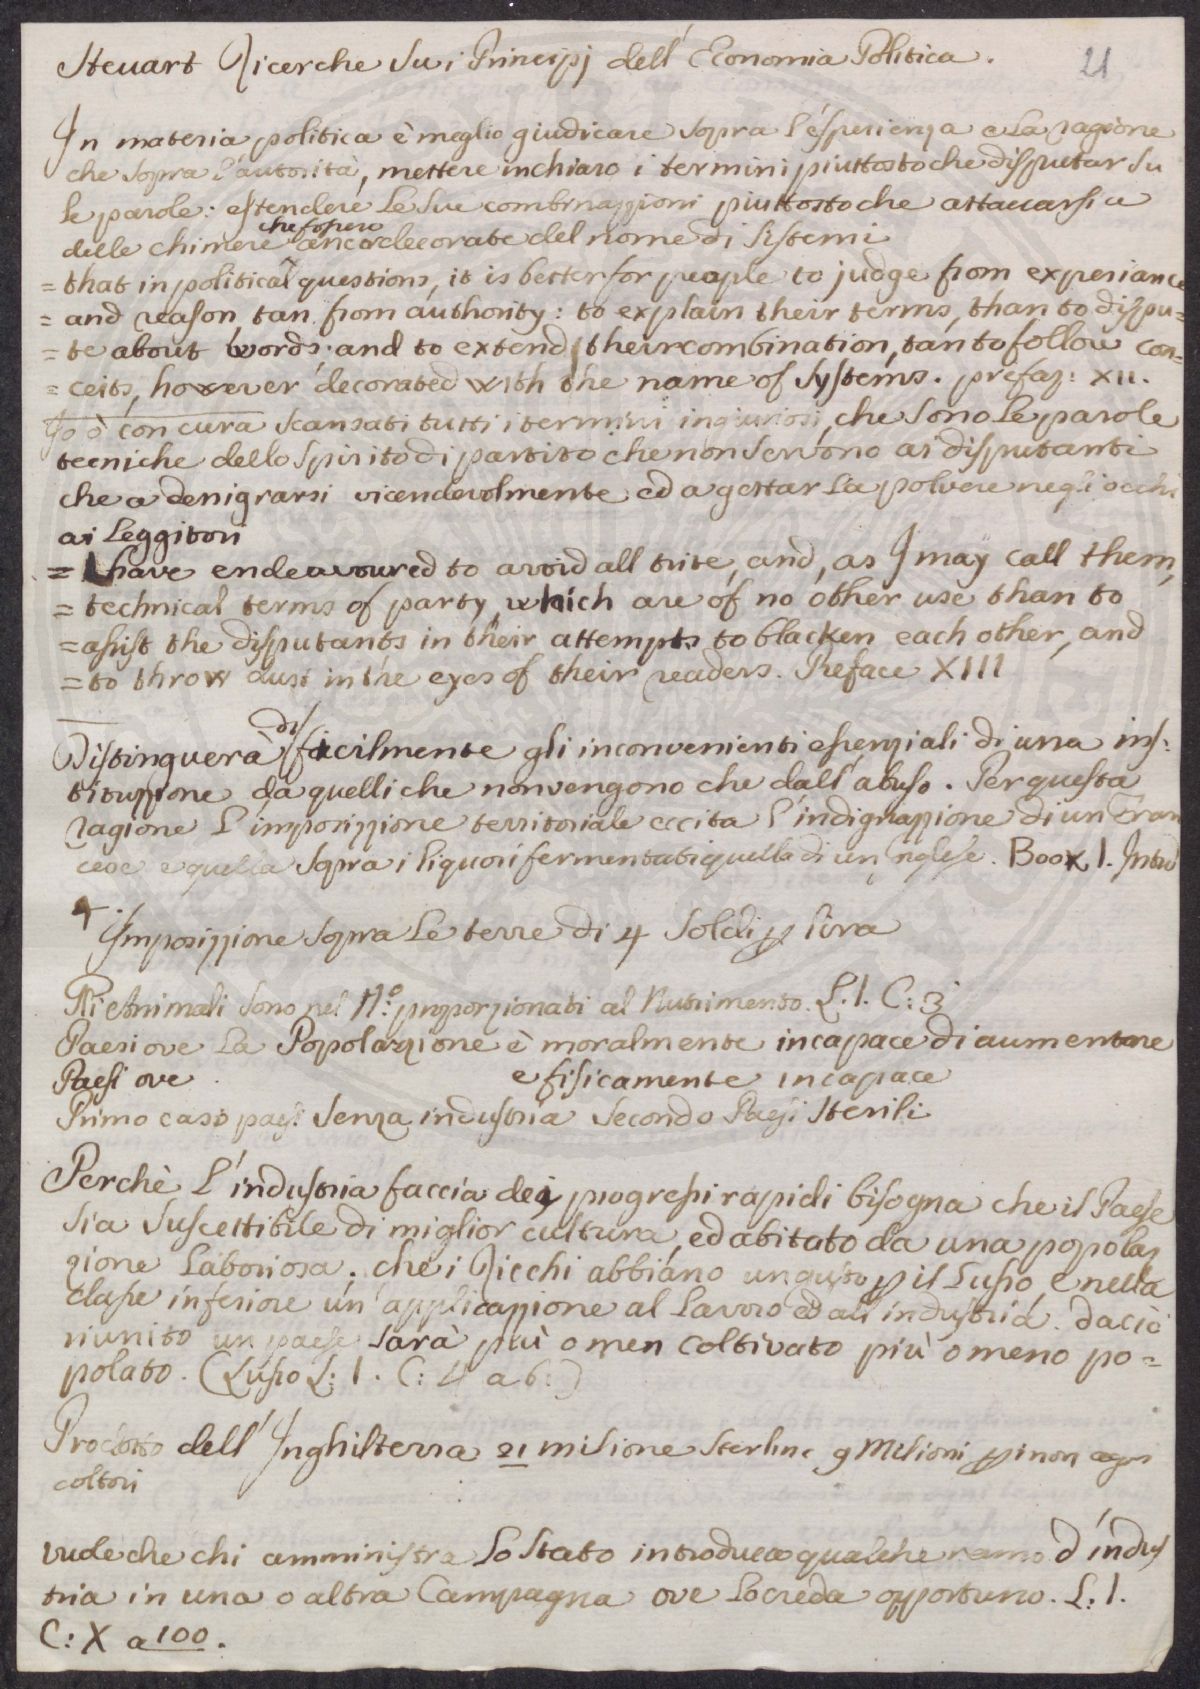 Steuart Ricerche su i Principj dell'Economia Politica.
21
In materia politica è meglio giudicare sopra l'esperienza e la ragione
che sopra l'autorità, mettere in chiaro i termini piuttosto che disputar su
le parole: estendere le sue combinazzioni piuttosto che attaccarsi a
che fossero
delle chimere ancor decorate del nome di sistemi
= that in political questions, it is better for people to judge from experiance
= and reason, tan from authority: to explain their terms, than to dispu=
= te about words; and to extend their combination, tan to follow con=
= ceits, however decorated with the name of Systems. prefaz: XII.
Io ò con cura scansati tutti i termini ingiuriosi, che sono le parole
tecniche dello spirito di partito che non servono ai disputanti
che a denigrarsi vicendevolmente ed a gettar la polvere negli occhi
ai Leggitori
= I have endeavoured to avoid all trite, and, as I may call them,
= technical terms of party, which are of no other use than to
= assist the disputants in their attempts to blacken each other, and
= to throw dust in the eyes of their readers. Preface XIII
di
Distinguerà facilmente gli inconvenienti essenziali di una ins=
tituzzione da quelli che non vengono che dall'abuso. Per questa
ragione l'imposizzione territoriale eccita l'indignazzione di un Fran
cese e quella sopra i liquori fermentati quella di un Inglese. Book I. Introd
+ Imposizzione sopra le terre di 4 soldi p lira
Gli Animali sono nel N.º proporzionati al Nutrimento. L. I. C: 3
Paesi ove la Popolazione è moralmente incapace di aumentare
Paesi ove e fisicamente incapace
Primo caso paesi senza industria secondo Paesi sterili
Perchè l'industria faccia dei progressi rapidi bisogna che il Paese
sia suscettibile di miglior cultura, ed abitato da una popola
zione laboriosa; che i Ricchi abbiano un gusto p il Lusso, e nella
classe inferiore un'applicazzione al lavoro ed all'industria. da ciò
riunito un paese sarà più o men coltivato più o meno po=
polato. (Lusso L: I. C: 4 a 6:)
Prodotto dell'Inghilterra 21 milione sterline 9 Milioni p i non agri
coltori
vuole che chi amministra lo stato introduca qualche ramo d'indus
tria in una o altra Campagna ove lo creda opportuno. L: I.
C: X a 100.